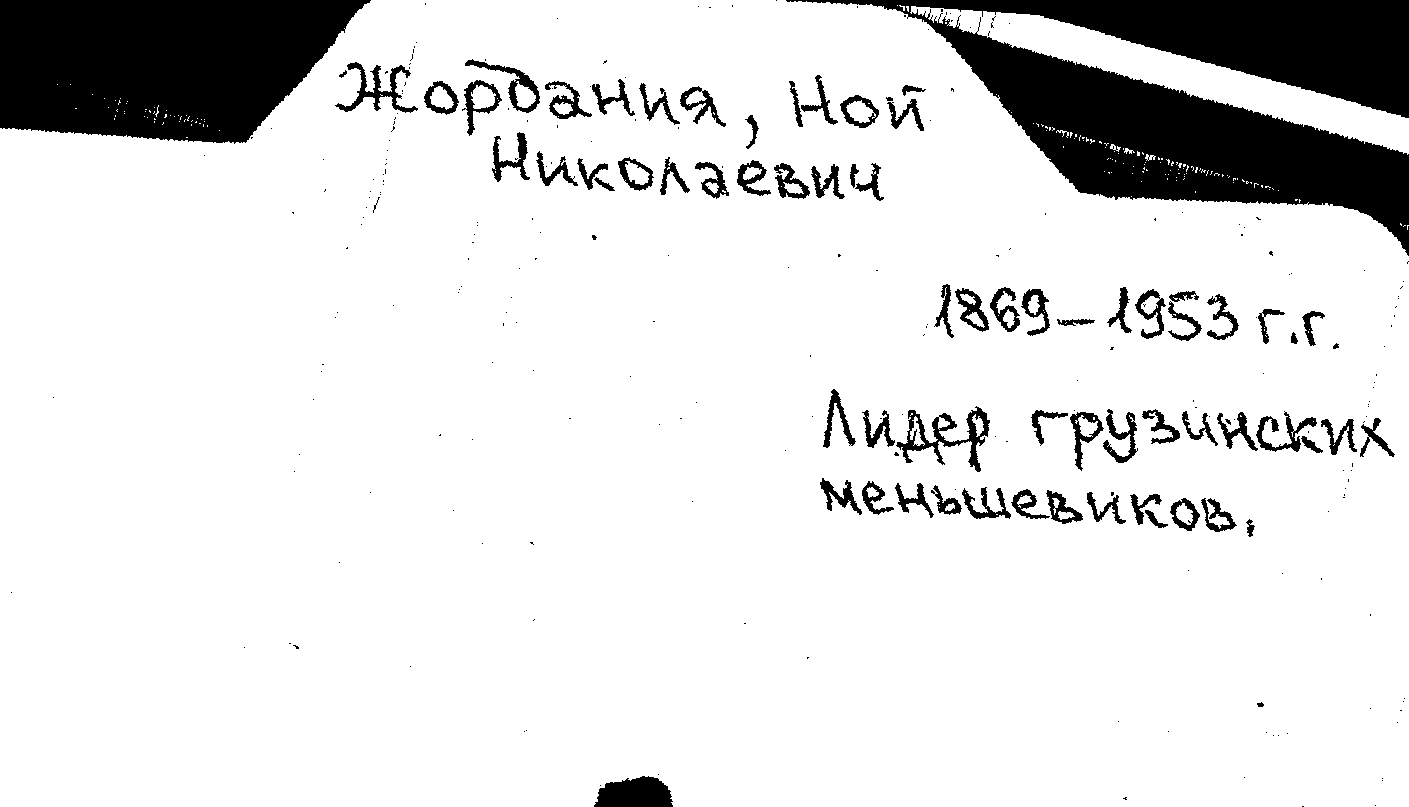 Жордания, Ной
Николаевич
1869–1953 г.г.
Лидер грузинских
меньшевиков.